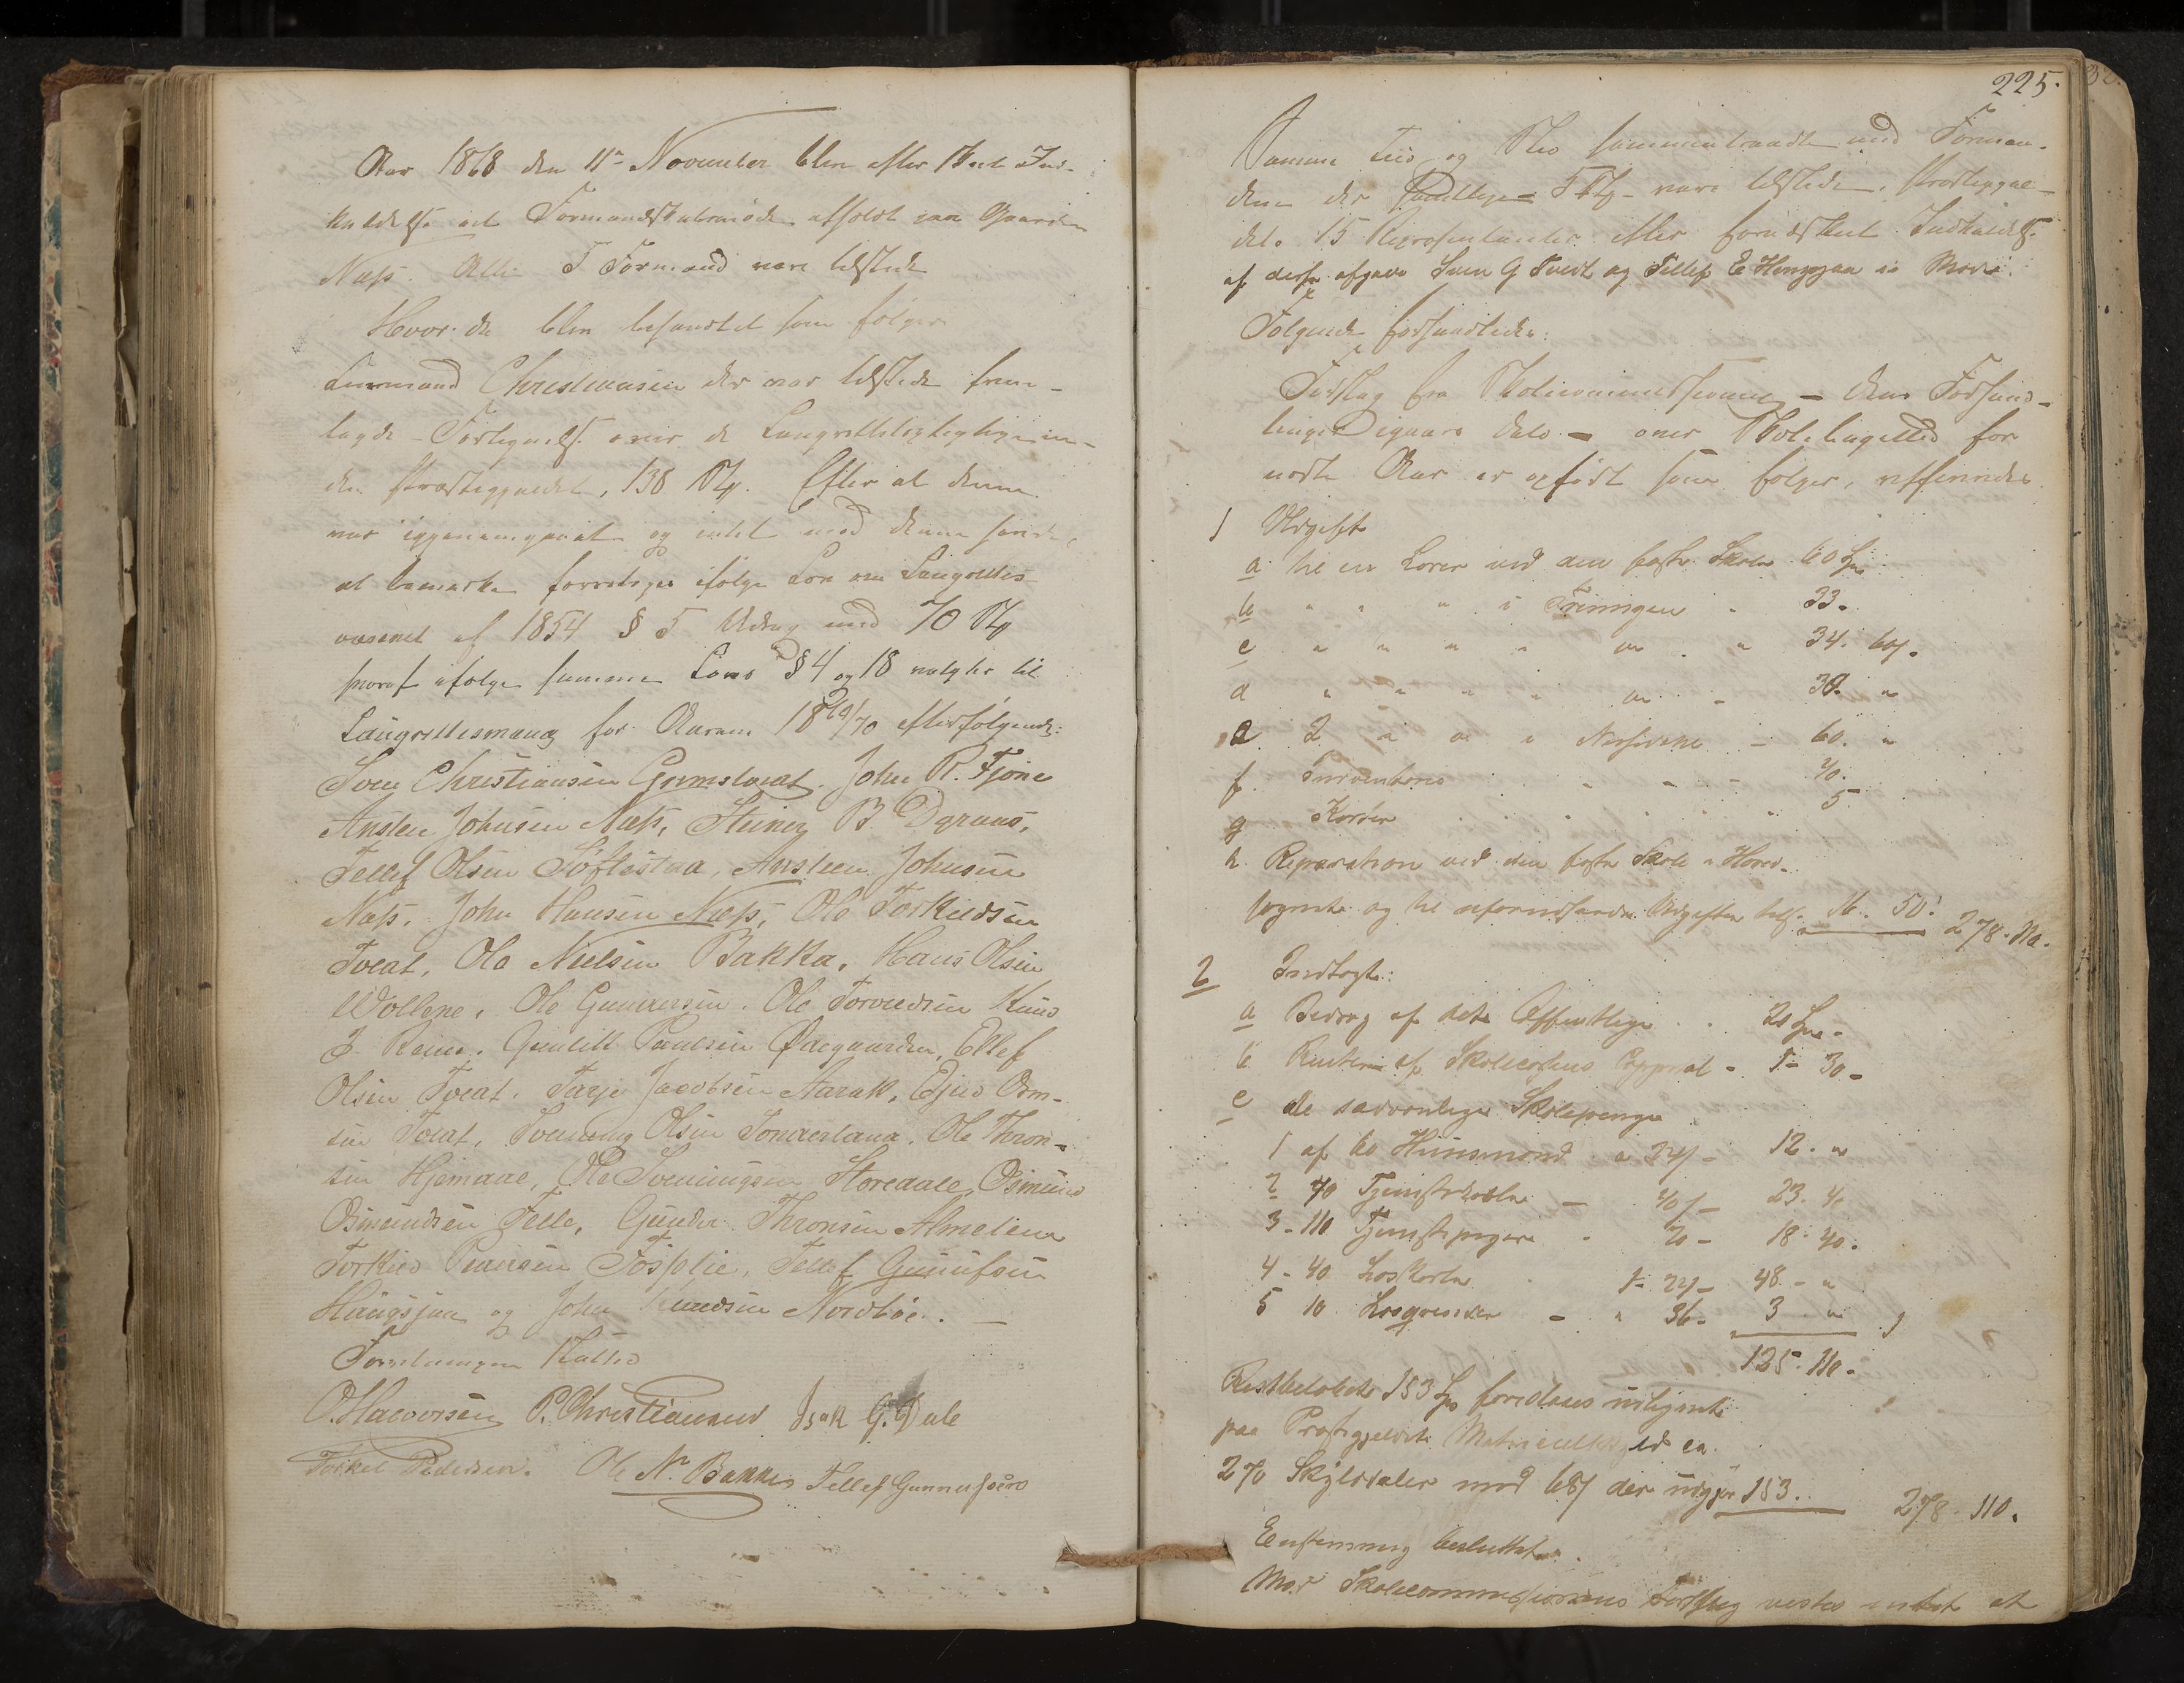 Aar 1868 den 11te November blev efter skeet Ind-
kaldelse et Formandskabsmøde afholdt paa Gaarden
Næss. Alle 5 Formænd vare tilstede
Hvor da blev behandlet som følger
Lensmand Christiansen der var tilstede frem-
lagde Fortegnelse over de Laugrettespligtige in-
den Præstegjældet, 138 Stk. Efter at denne
var igjennemgaaet og intet mod denne fandtes
at bemærke foretoges ifølge Lov om Laugrettes-
væsenet af 1854 § 5 Udtog med 70 Stk
hvoraf ifølge samme Lovs § 4 og 18 valgtes til
Laugrettesmænd for Aarene 1869/70 efterfølgende:
Sven Christiansen Grimstveat. John R. Fjone
Ansten Johnsen Næss, Steiner B. Dgraus,
Tellef Olsen Tøftestua, Ansteen Johnsen
Næss. John Hansen Næss, Ole Torkildsen
Tveat, Ole Nielsen Bakka, Hans Olsen
Wollene, Ole Gunnersen. Ole Torvildsen Knud
J. Reine. Gunleik Paulsen Ødegaarden, Ellef
Olsen Tveat. Tarje Jacobsen Aarak, Ejvid Orm-
sen Tveat, Svenung Olsen Tonderlana. Ole Thron-
sen Hjemaae, Ole Sveningsen Storedale, Osmund
Osmundsen Felle, Gunder Thronsen Almelien
Torkild Pedersen Fosslie, Tellef Gunnufsen
Haugsjaa og John Knudsen Nordbøe.
Forretningen sluttes
O. Halvorsen P. Christiansen Isak G. Dale
Torkel Pedersen. Ole N. Bakka Tellef Gunnufsen
225.
Samme Tid og Sted sammentraadte med Formæn-
dene der samtlige 5 Stk. vare tilstede, Præstegjæl-
dets 15 Repræsentanter efter forudskeet Indkaldelse
af disse afgave Sven G Tveit og Tellef E Haugsjaa ei Møde.
Følgende forhandledes:
Forslag fra Skolecommissionen - dens Forhand-
linger Dgaars Dato - over Skolebudgettet for
næste Aar er opført som følger, nemlig
1 Udgift
a til en Lærer ved den faste Skole 60 Spd
b " " " i Treungen " 33.
c " " " " " . " 34. 60 s.
d " " " " " - 30. "
e 2 " " i Nissedal - 60. "
f. Inventarie - - - 40.
g Kasserer . . . . . 5
h. Reparation ved den faste Skole i Hoved-
sognet og til uforudseende Udgifter Tils. 16. 50. 278. 110.
2 Indtægt:
a Bidrag af det Offentlige . . 20 Spd.
b Renter af Skolecassens Capital - 5 - 30 -
c de sædvanlige Skolepenge
1 af 60 Huusmænd a 24 s - 12. "
2 70 Tjenestekarle - 40 s - 23. 40
3 - 110 Tjenestepiger - 20 - 18. 40.
4 - 40 Løskarle 1 - 24 - 48 - "
5 10 Løsqvinder - " 36 - 3 "
125. 110.
Restbeløbet 153 Spd foreslaaes udlignet
paa Præstegjældets Matrikulskyld ca.
270 Skylddaler med 68 s der udgjør 153. 278. 110.
Enstemmig besluttet.
Mod Skolecommissionens Forslag vistes intet at